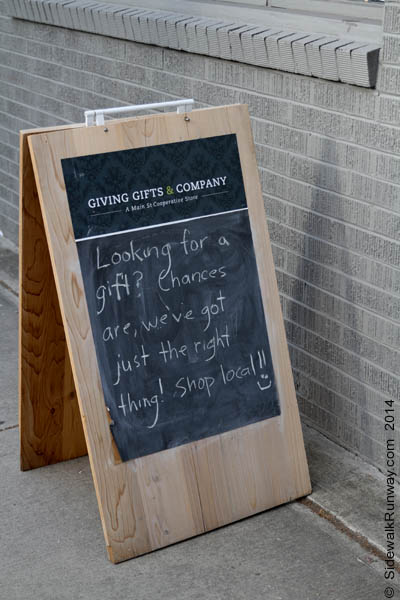 GIVING GIFTS & COMPANY
A Main St Cooperative Store
Looking for a
gift? Chances
are, we've got
just the right
thing! Shop local!!
© SidewalkRunway.com 2014